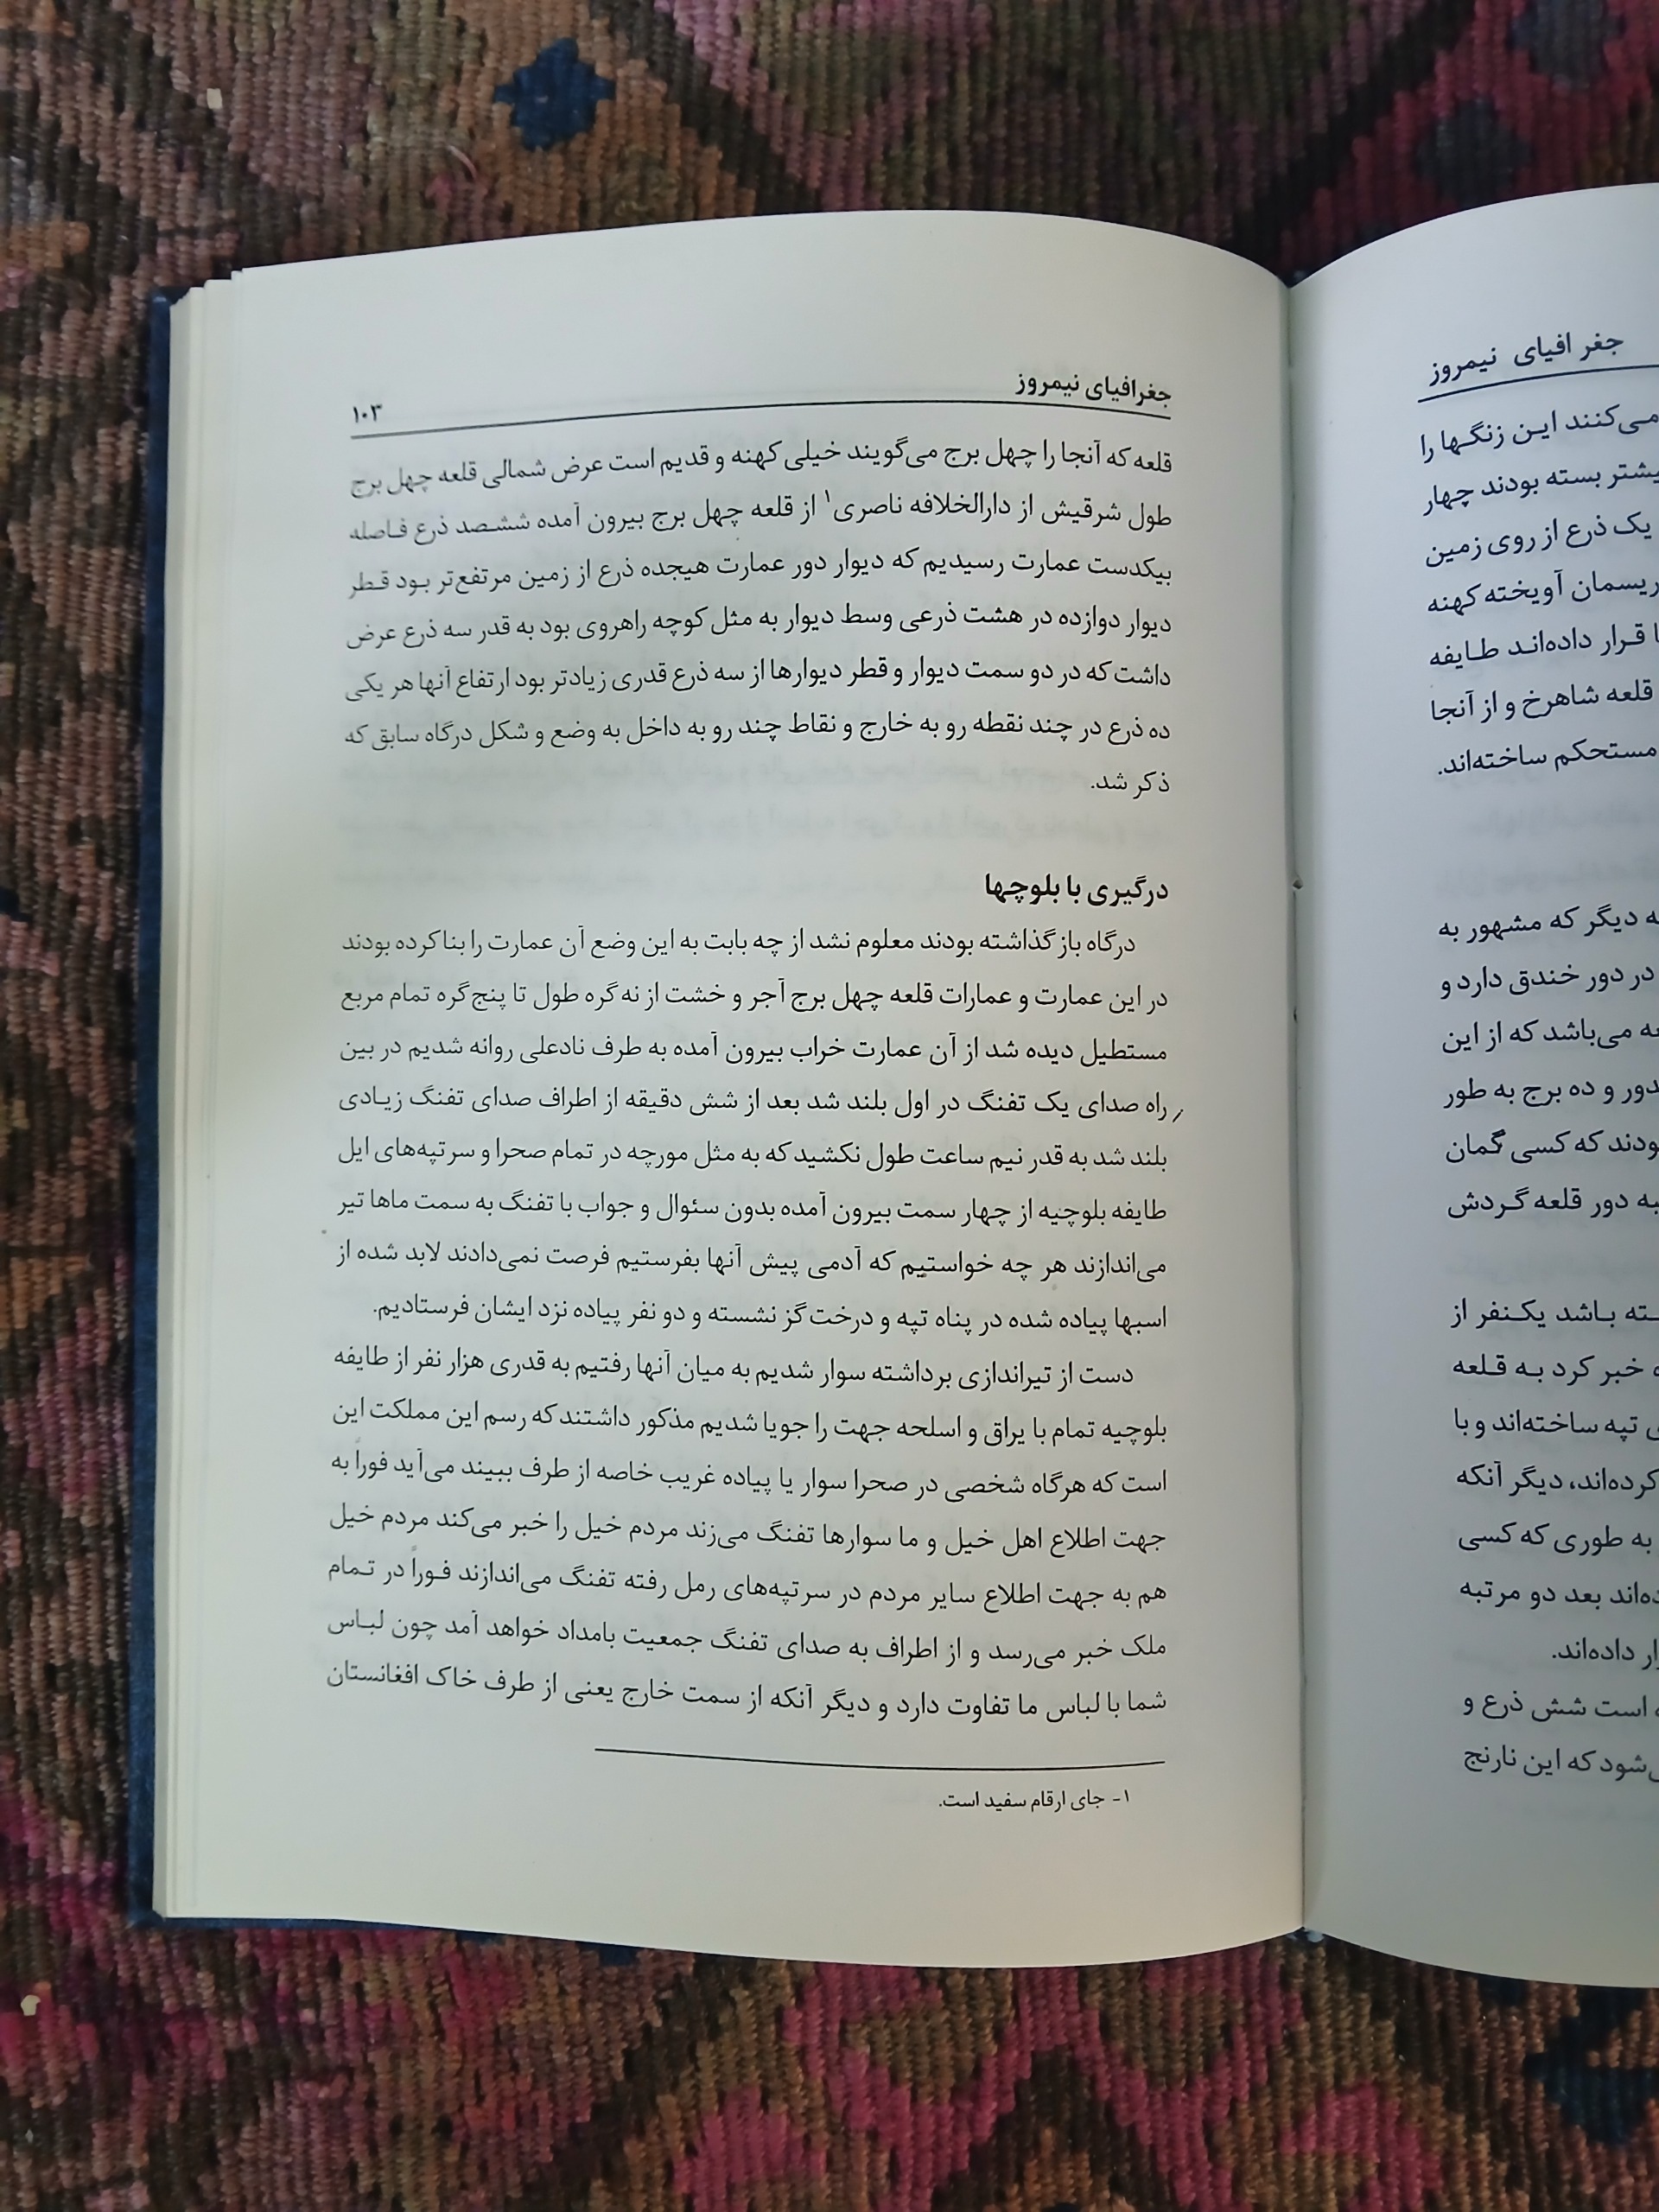 جغر افیای نیمروز
می‌کنند ایـن زنگـها را
یشتر بسته بودند چهار
یک ذرع از روی زمین
ریسمان آویخته کهنه
ا قـرار داده‌انـد طـایفه
قلعه شاهرخ و از آنجا
مستحکم ساخته‌اند.
ه دیگر که مشهور به
در دور خندق دارد و
عه می‌باشد که از این
دور و ده برج به طور
ودند که کسی گمان
به دور قلعه گـردش
ـته بـاشد یکـنفر از
ه خبر کرد بـه قـلعه
ی تپه ساخته‌اند و با
کرده‌اند، دیگر آنکه
به طوری که کسی
ده‌اند بعد دو مرتبه
ار داده‌اند.
ه است شش ذرع و
ی‌شود که این نارنج
جغرافیای نیمروز ۱۰۳
قلعه که آنجا را چهل برج می‌گویند خیلی کهنه و قدیم است عرض شمالی قلعه چهل برج
طول شرقیش از دارالخلافه ناصری۱ از قلعه چهل برج بیرون آمده ششـصد ذرع فـاصله
بیکدست عمارت رسیدیم که دیوار دور عمارت هیجده ذرع از زمین مرتفع‌تر بـود قـطر
دیوار دوازده در هشت ذرعی وسط دیوار به مثل کوچه راهروی بود به قدر سه ذرع عرض
داشت که در دو سمت دیوار و قطر دیوارها از سه ذرع قدری زیادتر بود ارتفاع آنها هر یکی
ده ذرع در چند نقطه رو به خارج و نقاط چند رو به داخل به وضع و شکل درگاه سابق که
ذکر شد.
درگیری با بلوچها
درگاه باز گذاشته بودند معلوم نشد از چه بابت به این وضع آن عمارت را بنا کرده بودند
در این عمارت و عمارات قلعه چهل برج آجر و خشت از نه گره طول تا پنج گره تمام مربع
مستطیل دیده شد از آن عمارت خراب بیرون آمده به طرف نادعلی روانه شدیم در بین
راه صدای یک تفنگ در اول بلند شد بعد از شش دقیقه از اطراف صدای تفنگ زیـادی
بلند شد به قدر نیم ساعت طول نکشید که به مثل مورچه در تمام صحرا و سر تپه‌های ایل
طایفه بلوچیه از چهار سمت بیرون آمده بدون سئوال و جواب با تفنگ به سمت ماها تیر
می‌اندازند هر چه خواستیم که آدمی پیش آنها بفرستیم فرصت نمی‌دادند لابد شده از
اسبها پیاده شده در پناه تپه و درخت گز نشسته و دو نفر پیاده نزد ایشان فرستادیم.
دست از تیراندازی برداشته سوار شدیم به میان آنها رفتیم به قدری هزار نفر از طایفه
بلوچیه تمام با یراق و اسلحه جهت را جویا شدیم مذکور داشتند که رسم این مملکت این
است که هرگاه شخصی در صحرا سوار یا پیاده غریب خاصه از طرف ببیند می‌آید فوراً به
جهت اطلاع اهل خیل و ما سوارها تفنگ می‌زند مردم خیل را خبر می‌کند مردم خیل
هم به جهت اطلاع سایر مردم در سر تپه‌های رمل رفته تفنگ می‌اندازند فـوراً در تـمام
ملک خبر می‌رسد و از اطراف به صدای تفنگ جمعیت بامداد خواهد آمد چون لبـاس
شما با لباس ما تفاوت دارد و دیگر آنکه از سمت خارج یعنی از طرف خاک افغانستان
۱- جای ارقام سفید است.